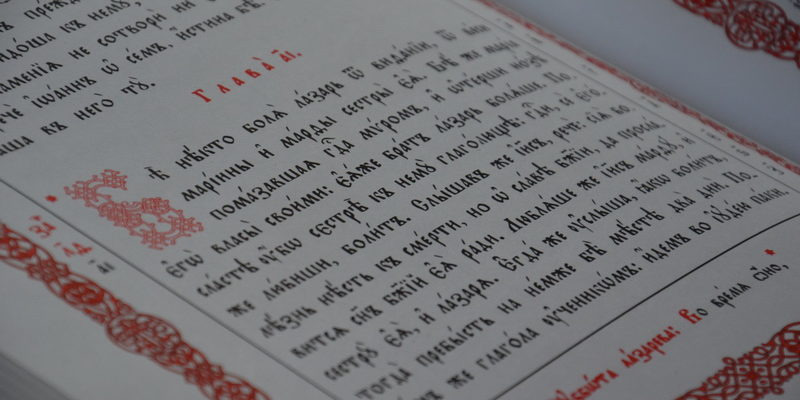 не сотвори ни
їѡа́ннъ ѡ҆ се́мъ, и҆́стина бѣ̀.
въ него̀ тꙋ̀.
Глава̀ а҃і.
Бѣ̀ нѣ́кто болѧ̀ ла́зарь ѿ виѳа́нїи, ѿ ве́си
марі́ины и҆ ма́рѳы сестры̀ є҆ѧ̀. Бѣ́ же марі́а
пома́завшаѧ гдⷭ҇а мѵ́ромъ, и҆ ѡ҆те́рши но́зѣ
є҆гѡ̀ власы̀ свои́ми: є҆ѧ́же бра́тъ ла́зарь болѧ́ше. По-
сла́стѣ ᲂу҆̀бѡ сестрѣ̀ къ немꙋ̀ глаго́лющѣ: гдⷭ҇и, сѐ є҆го́-
же лю́биши, боли́тъ. Слы́шавъ же і҆и҃съ, речѐ: сїѧ̀ бо-
лѣ́знь нѣ́сть къ сме́рти, но ѡ҆ сла́вѣ бж҃їи, да просла́-
витсѧ сн҃ъ бж҃їй є҆ѧ̀ ра́ди. Люблѧ́ше же і҆и҃съ ма́рѳꙋ, и҆
сестрꙋ̀ є҆ѧ̀, и҆ ла́зарѧ. Є҆гда́ же ᲂу҆слы́ша, ꙗ҆́кѡ боли́тъ,
тогда̀ пребы́сть на не́мже бѣ̀ мѣ́стѣ два̀ дни̑. По-
же глаго́ла ᲂу҆ченикѡ́мъ: и҆́демъ во і҆ꙋде́ю па́ки.
ла́зарева: Во вре́мѧ ѻ҆́но,